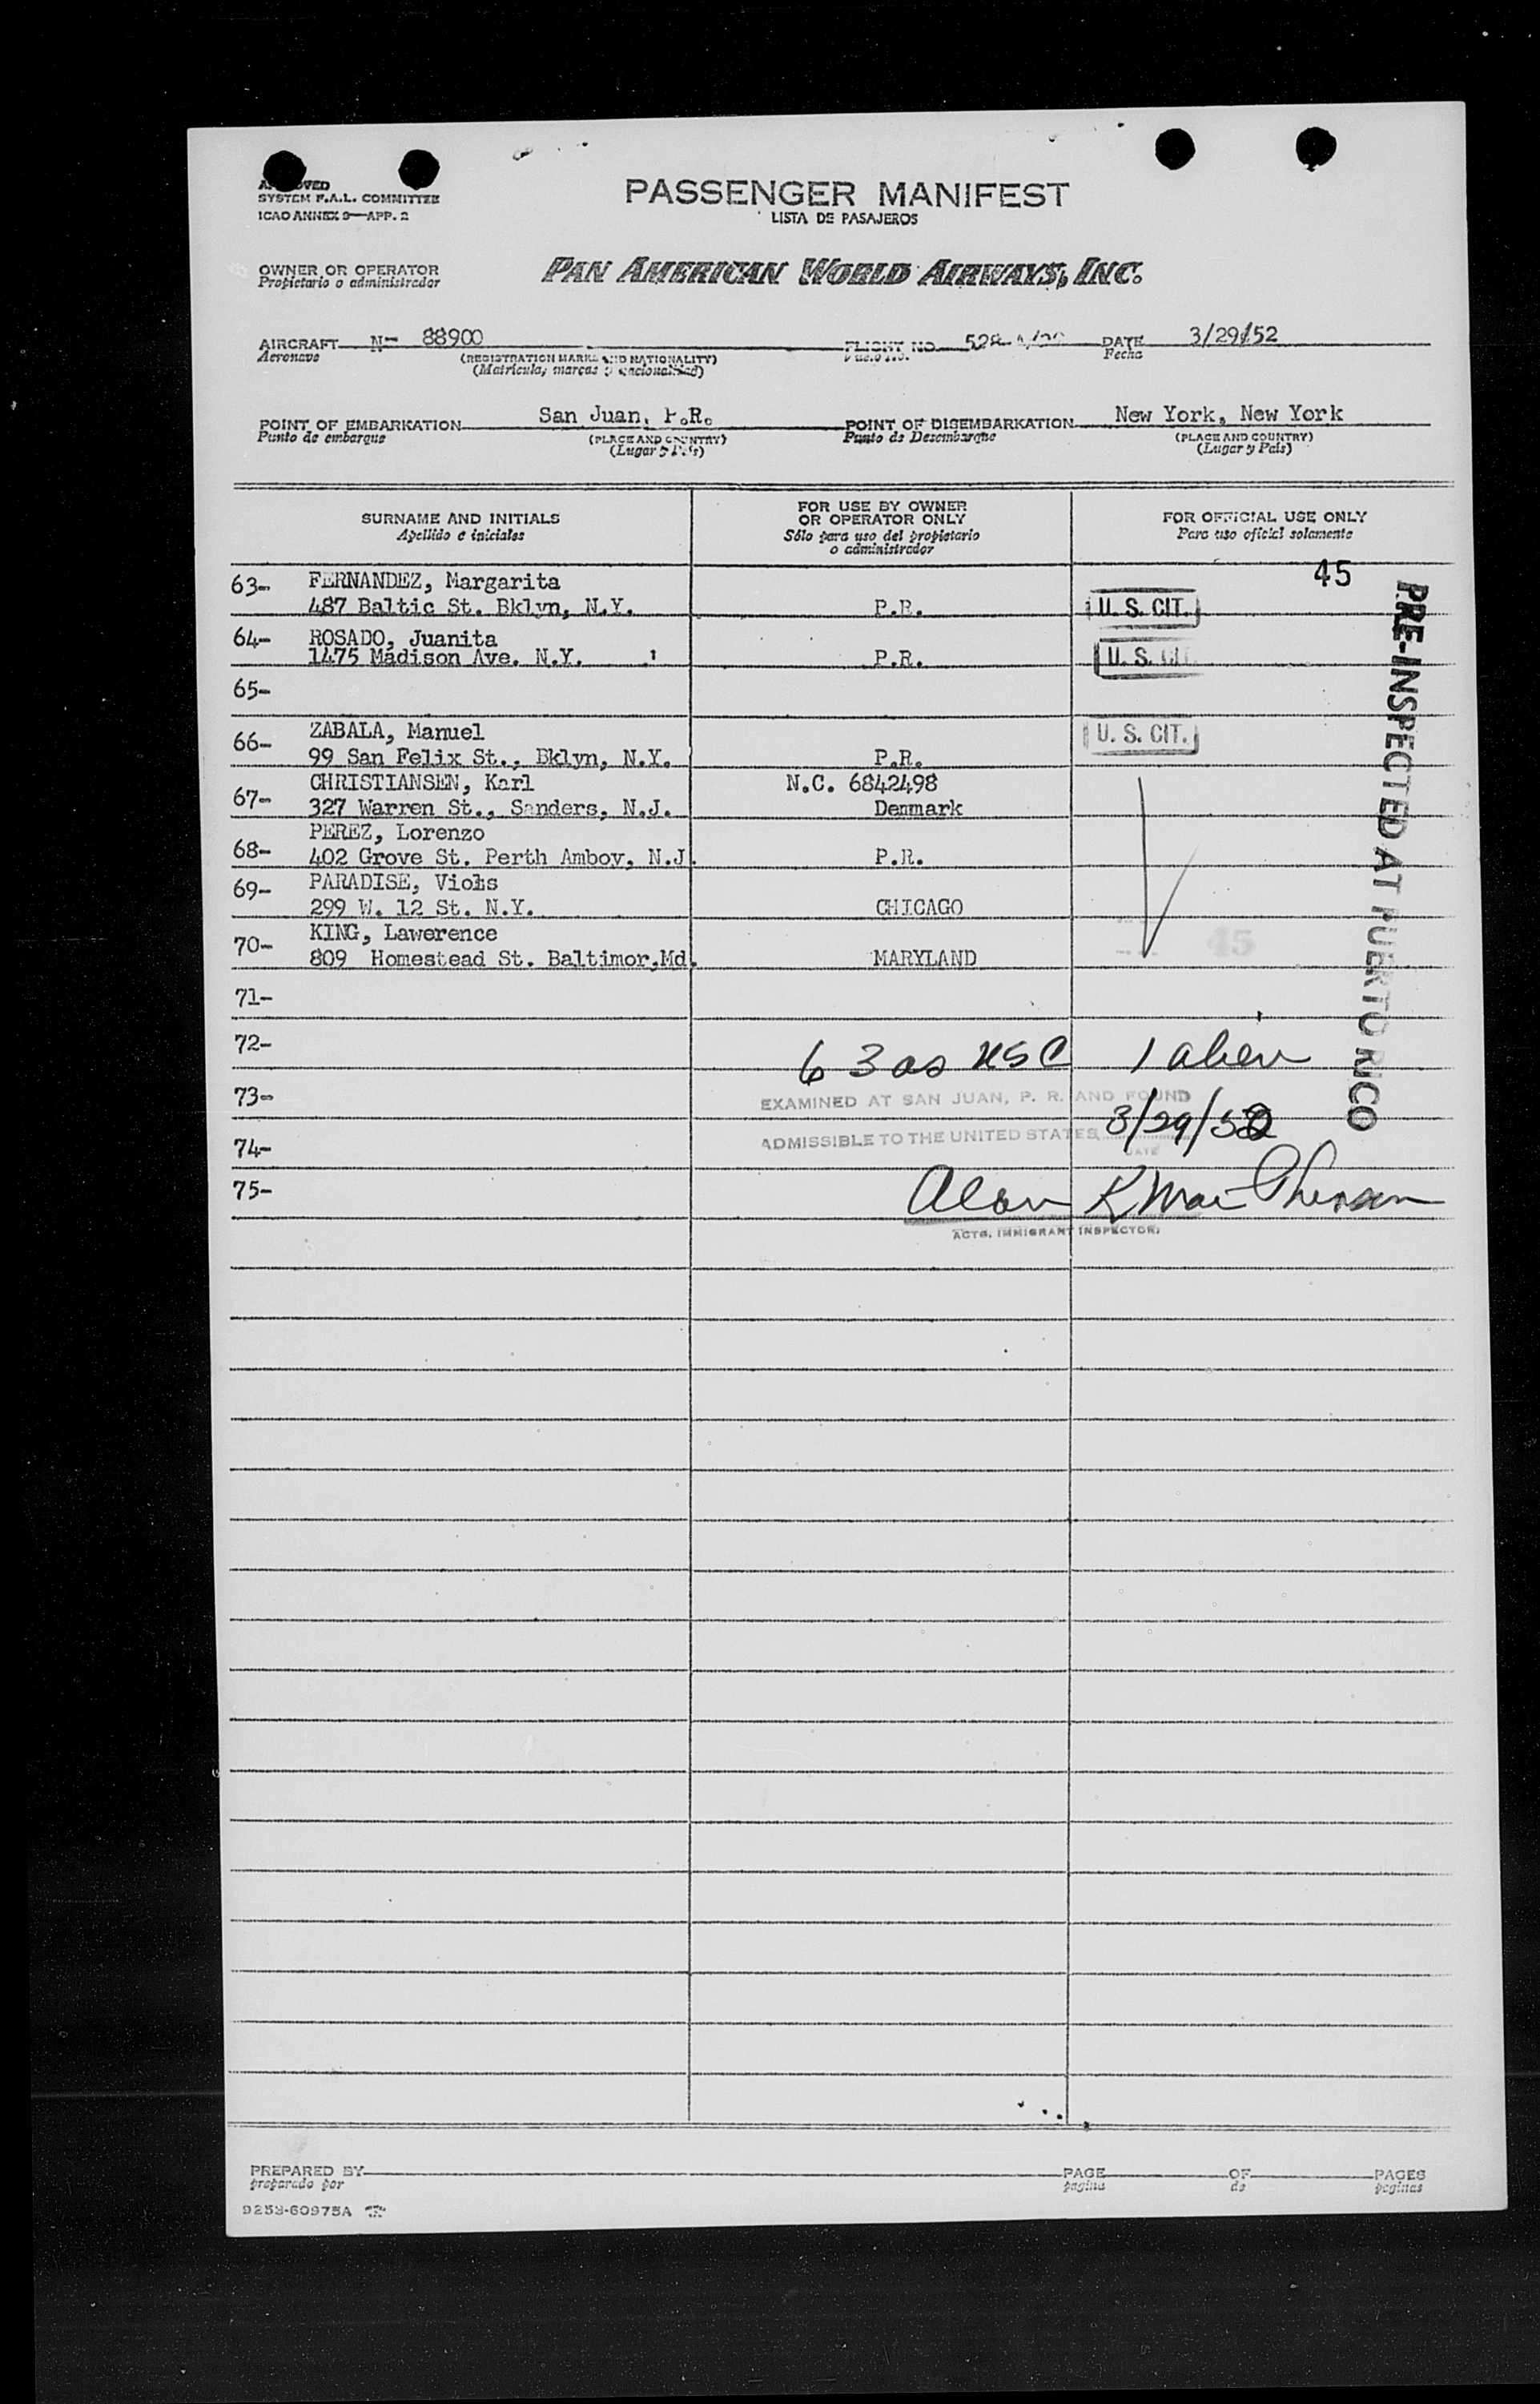 APPROVED
SYSTEM F.A.L. COMMITTEE
ICAO ANNEX 9—APP. 2
PASSENGER MANIFEST
LISTA DE PASAJEROS
OWNER OR OPERATOR
Propietario o administrador
PAN AMERICAN WORLD AIRWAYS, INC.
AIRCRAFT N- 88900 FLIGHT NO. 528 DATE 3/29/52
Aeronave Vuelo No. Fecha
(REGISTRATION MARKS AND NATIONALITY)
(Matrícula, marcas y nacionalidad)
POINT OF EMBARKATION San Juan, P.R. POINT OF DISEMBARKATION New York, New York
Punto de embarque (PLACE AND COUNTRY) Punto de Desembarque (PLACE AND COUNTRY)
(Lugar y País) (Lugar y País)
SURNAME AND INITIALS
Apellido e iniciales
FOR USE BY OWNER
OR OPERATOR ONLY
Sólo para uso del propietario
o administrador
FOR OFFICIAL USE ONLY
Para uso oficial solamente
45
63- FERNANDEZ, Margarita
487 Baltic St. Bklyn, N.Y. P.R. U. S. CIT.
64- ROSADO, Juanita
1475 Madison Ave. N.Y. P.R. U. S. CIT.
65-
66- ZABALA, Manuel U. S. CIT.
99 San Felix St., Bklyn, N.Y. P.R.
67- CHRISTIANSEN, Karl N.C. 6842498
327 Warren St., Sanders, N.J. Denmark
68- PEREZ, Lorenzo
402 Grove St. Perth Amboy, N.J. P.R.
69- PARADISE,
299 W. 12 St. N.Y. CHICAGO
70- KING, Lawerence
809 Homestead St. Baltimor,Md. MARYLAND
45
71-
72- 63 as USC 1 alien
73-
EXAMINED AT SAN JUAN, P. R. AND FOUND
74-
ADMISSIBLE TO THE UNITED STATES 3/29/52
DATE
75-
Alan K MacPherson
ACTG. IMMIGRANT INSPECTOR
PRE-INSPECTED AT PUERTO RICO
PREPARED BY PAGE OF PAGES
preparado por página de páginas
9253-60975A